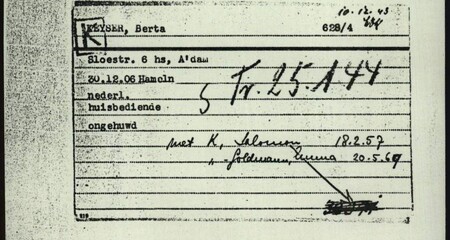 10.12.43
K
KEYSER, Berta 628/4
Sloestr. 6 hs, A'dam
30.12.06 Hameln
Tr. 25.1 44
nederl.
huisbediende
ongehuwd
met K, Salomon 18.2.57
" Goldmann, Emma 20.5.69